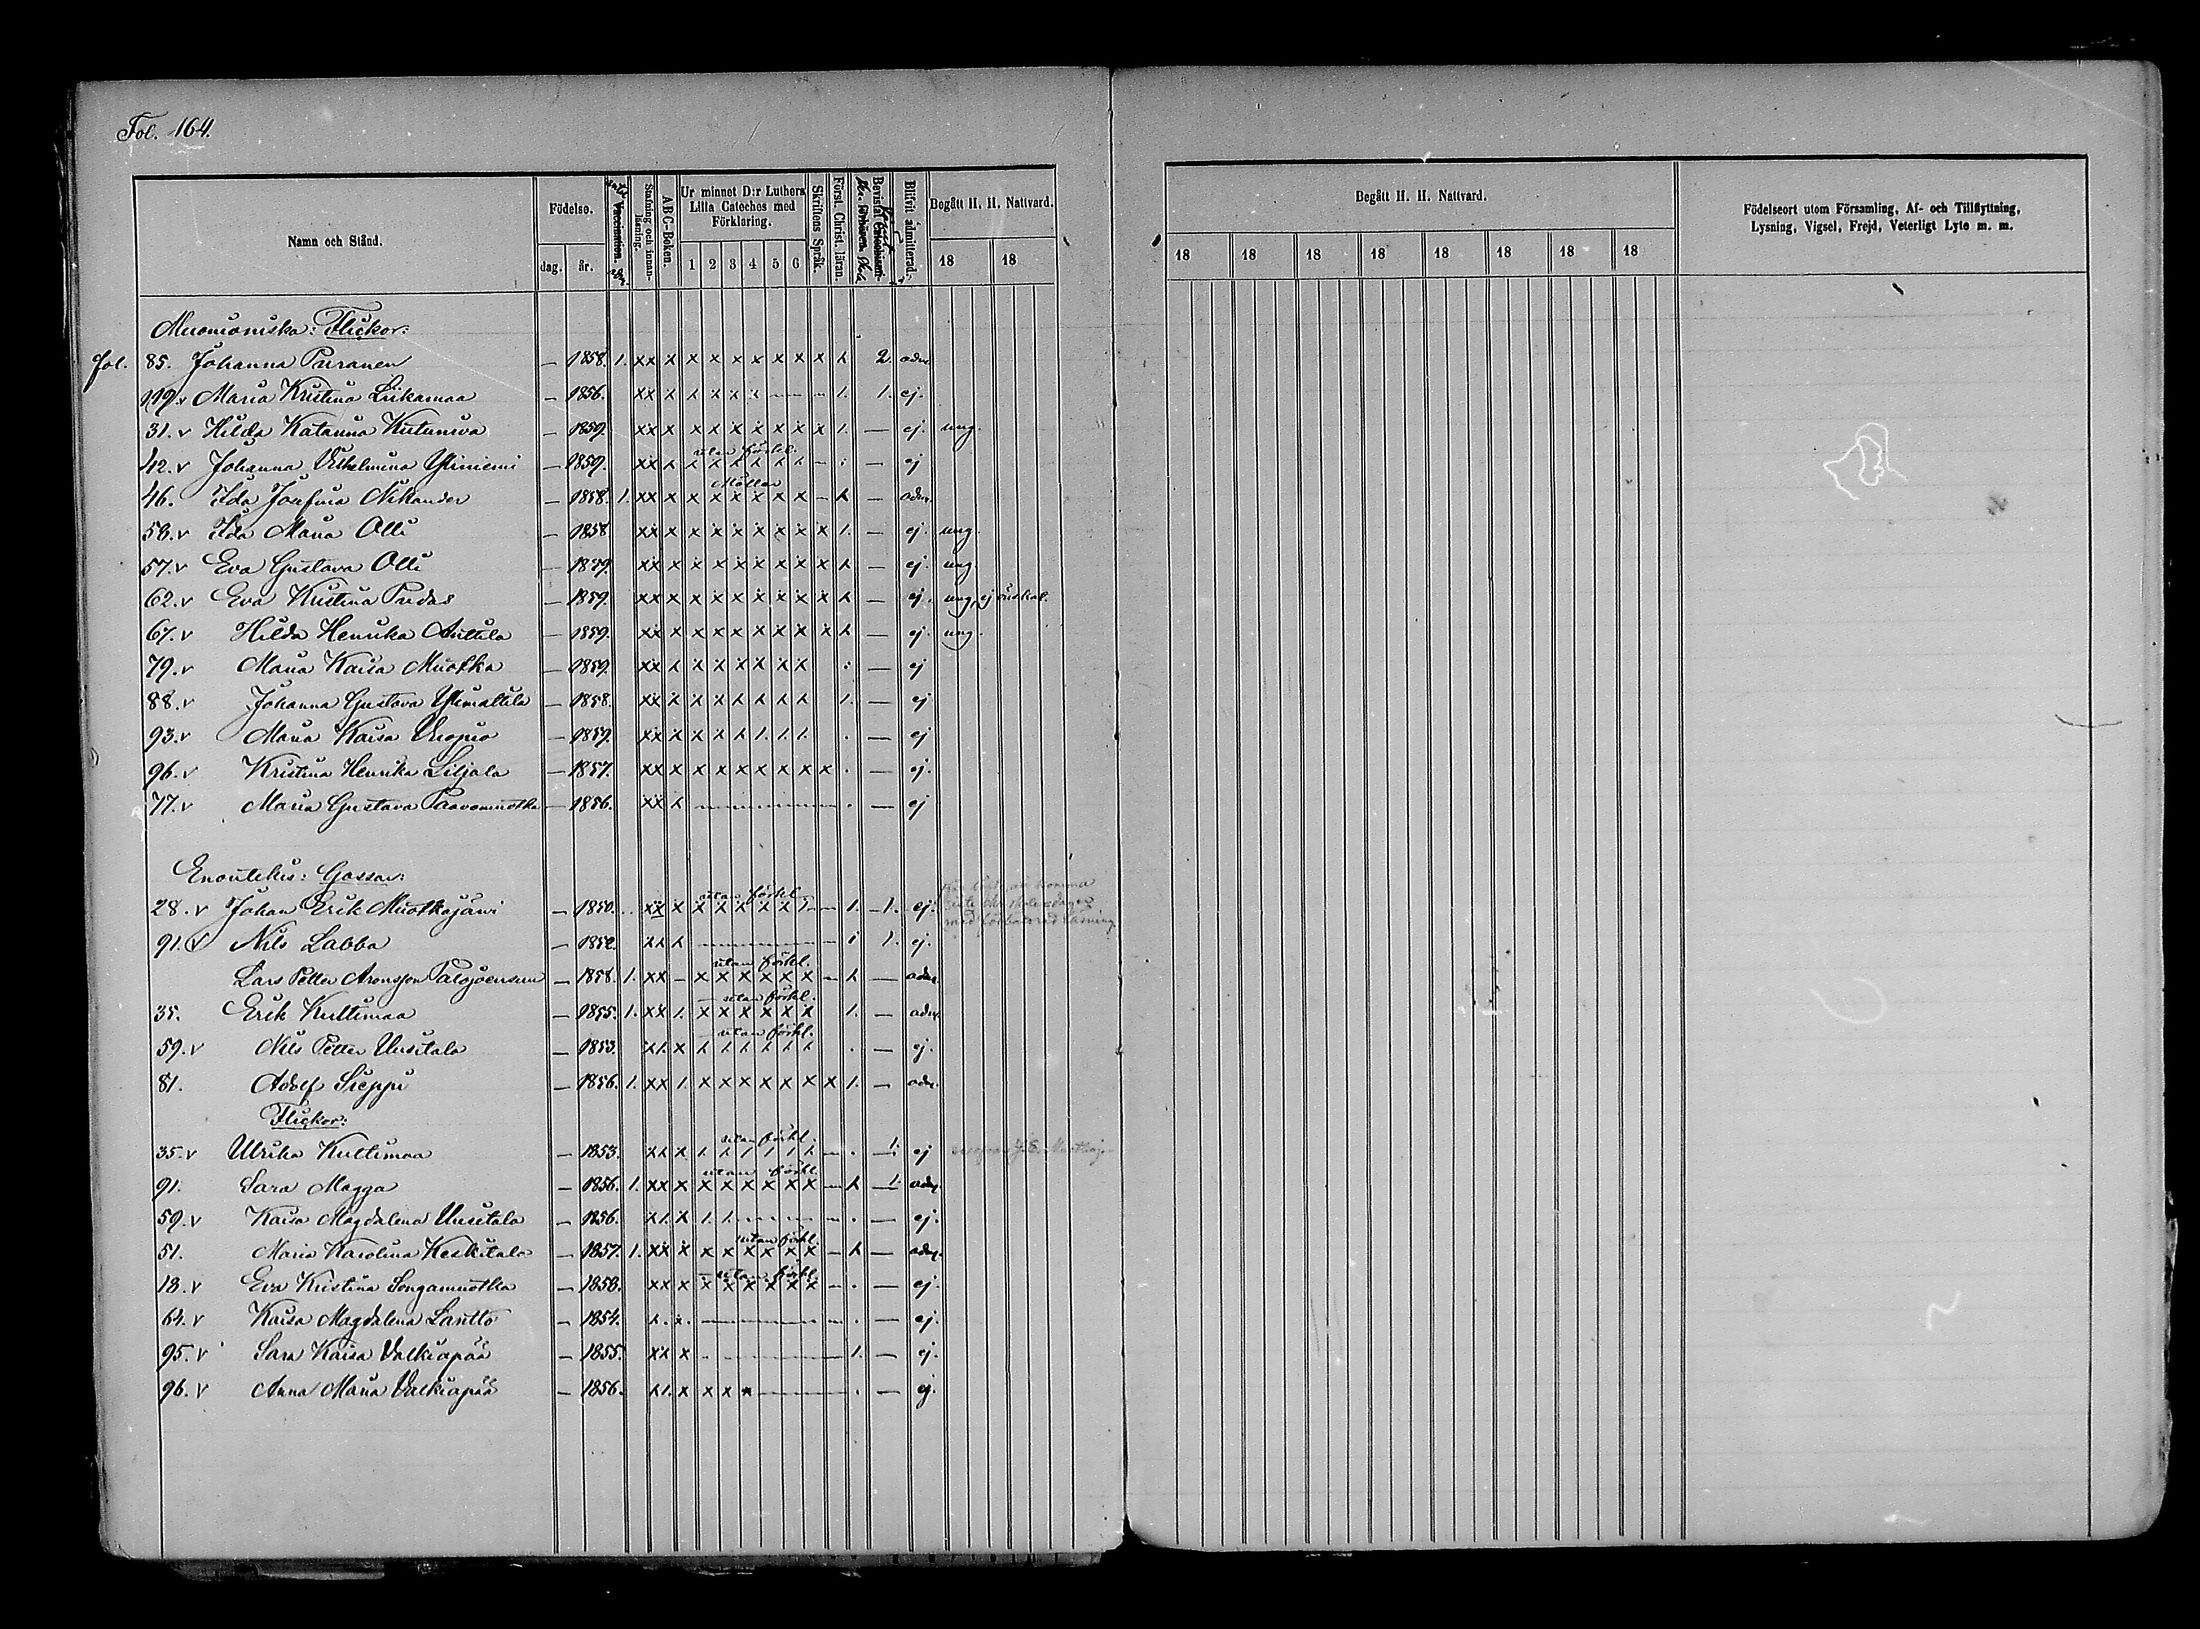 Fol. 164.
Namn och Stånd.
Födelse.
dag. år.
Vaccination.
Stafning och innanläsning.
ABC-Boken.
Ur minnet D:r Luthers Lilla Cateches med Förklaring.
1 2 3 4 5 6
Skriftens Språk.
Först. Christ. läran.
Blifvit admitterad.
Begått H. H. Nattvard.
18 18
Begått H. H. Nattvard.
18 18 18 18 18 18 18 18
Födelseort utom Församling, Af- och Tillflyttning,
Lysning, Vigsel, Frejd, Veterligt Lyte m. m.
Muonioniska: Flickor:
fol. 85. Johanna — 1858. 1. xx x x x x x x x x x 2. adm.
119. v Maria Kristina Liikamaa — 1856. xx x x x x x — — — 1. 1. ej.
31. v Hilda Katarina Kutuniva — 1859. xx x x x x x x x x 1. — ej. ung.
utan förkl.
42. v Johanna Vilhelmina Yliniemi — 1859. xx x x x x x x x — — ej
46. Ida Josefina Nikander — 1858. 1. xx x x x x x x x — x — adm.
58. v Ida Maria Olli — 1858 xx x x x x x x x x 1. — ej. ung.
57. v Eva Gustava Olli — 1859. xx x x x x x x x x x — ej. ung.
62. v Eva Kristina — 1859. xx x x x x x x x x x — ej. ung, ej
67. v Hilda Henrika Anttila — 1859. xx x x x x x x x x x — ej. ung.
79. v Maria Kaisa Muotka — 1859. xx x x x x x x x — ej
88. v Johanna Gustava Ylimattila — 1858. xx x x x x x x x 1. — ej
93. v Maria Kaisa Vuopio — 1859. xx x x x x 1. 1. 1. . — ej
96. v Kristina Henrika Liljala — 1857. xx x x x x x x x x . — ej.
77. v Maria Gustava Paavonmuotka — 1856. xx x — . — ej
Enontekis: Gossar:
utan förkl.
28. v Johan Erik Muotkajärvi — 1850. xx x x x x x x 1 — — 1. — 1. ej.
91. v Nils Labba — 1852. xx x — 1. ej.
utan förkl.
Lars Petter Aronsson Palojoensuu — 1858. 1. xx — x x x x x x — x — adm.
utan förkl.
35. Erik Kultimaa — 1855. 1. xx 1. x x x x x x 1. — adm.
utan förkl.
59. v Nils Petter Uusitalo — 1853. x1. x x x x x x x . — ej.
81. Adolf Sieppi — 1856. 1. xx 1. x x x x x x x 1. — adm.
Flickor:
utan förkl.
35. v Ulrika Kultimaa — 1853. xx x — . 1. ej
utan förkl.
91. Sara Magga — 1856. 1. xx x x x x x x x — x — 1. adm.
59. v Kaisa Magdalena Uusitalo — 1856. x1. x 1. 1. — — . — ej.
utan förkl.
51. Maria Karolina Keskitalo — 1857. 1. xx x x x x x x x — x — adm.
utan förkl.
18. v Eva Kristina Songamuotka — 1858. xx x x x x x x x — . — ej.
64. v Kaisa Magdalena Lantto — 1854. x. x. — — . — ej.
95. v Sara Kaisa Valkiapää — 1855. xx x — 1. — ej.
96. v Anna Maria Valkiapää — 1856. x1. x x x x — . — ej.